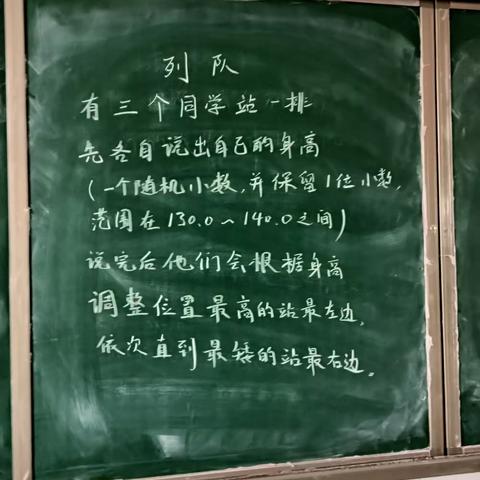 列队
有三个同学站一排
先各自说出自己的身高
(一个随机小数,并保留1位小数,
范围在130.0~140.0之间)
说完后他们会根据身高
调整位置最高的站最左边,
依次直到最矮的站最右边。